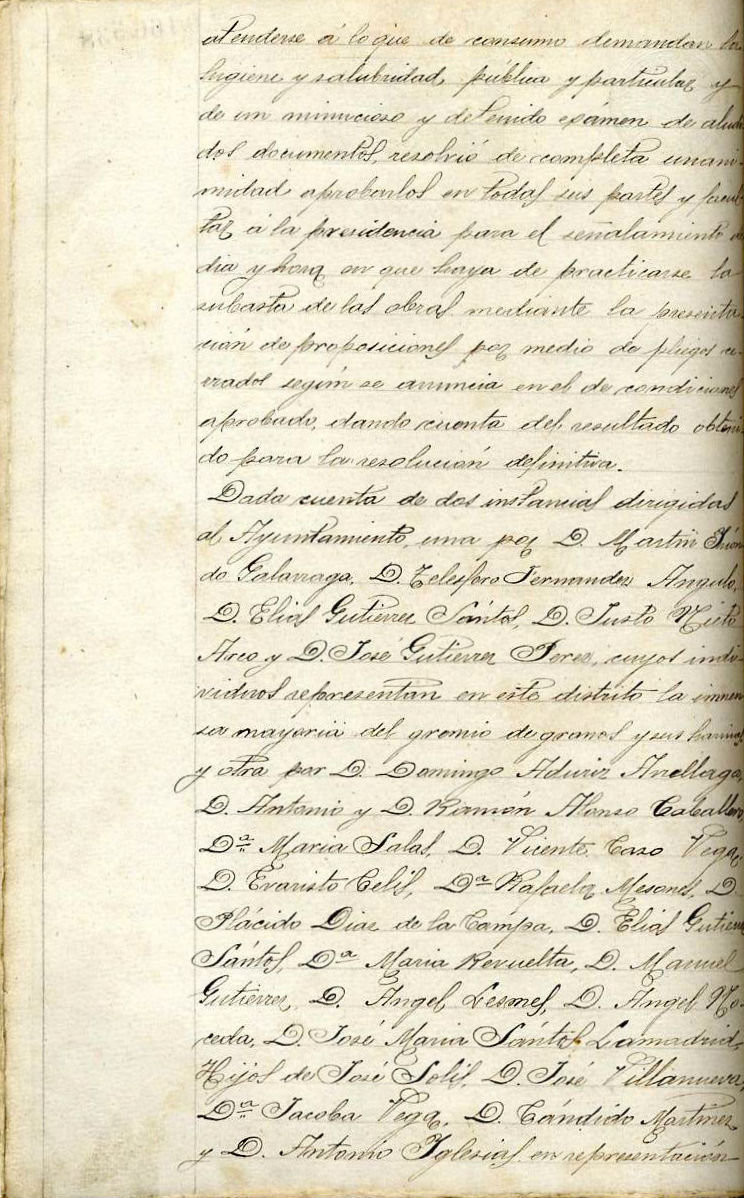 atenderse á lo que de consumo demandan la
higiene y salubridad, pública y particular y
de un minucioso y detenido exámen de aludi
dos documentos, resolvió de completa unani-
midad aprobarlos en todas sus partes y facul-
tar á la presidencia para el señalamiento de
dia y hora en que haya de practicarse la
subasta de las obras mediante la presenta-
ción de proposiciones por medio de pliegos ce-
rrados según se anuncia en el de condiciones
aprobado, dando cuenta del resultado obteni-
do para la resolución definitiva.
Dada cuenta de dos instancias dirigidas
al Ayuntamiento, una por D. Martin
do Galarraga, D. Telesforo Fernandez Angulo,
D. Elias Gutierrez Sántos, D. Justo Nieto
Arco y D. José Gutierrez Perez, cuyos indi-
viduos representan en este distrito la inmen
sa mayoria del gremio de granos y sus harinas
y otra por D. Domingo Aduriz Arellaga,
D. Antonio y D. Ramón Alonso Caballero
Dª Maria Salas, D. Vicente Cazo Vega,
D. Evaristo Celis, Dª Rafaela Mesones, D.
Plácido Diaz de la Campa, D. Elias Gutierrez
Sántos, Dª Maria Revuelta, D. Manuel
Gutierrez, D. Ángel Lesmes, D. Ángel No-
ceda, D. José Maria Sántos Lamadrid,
Hijos de José Solis, D. José Villanueva,
Dª Jacoba Vega, D. Cándido Martinez
y D. Antonio Iglesias en representación